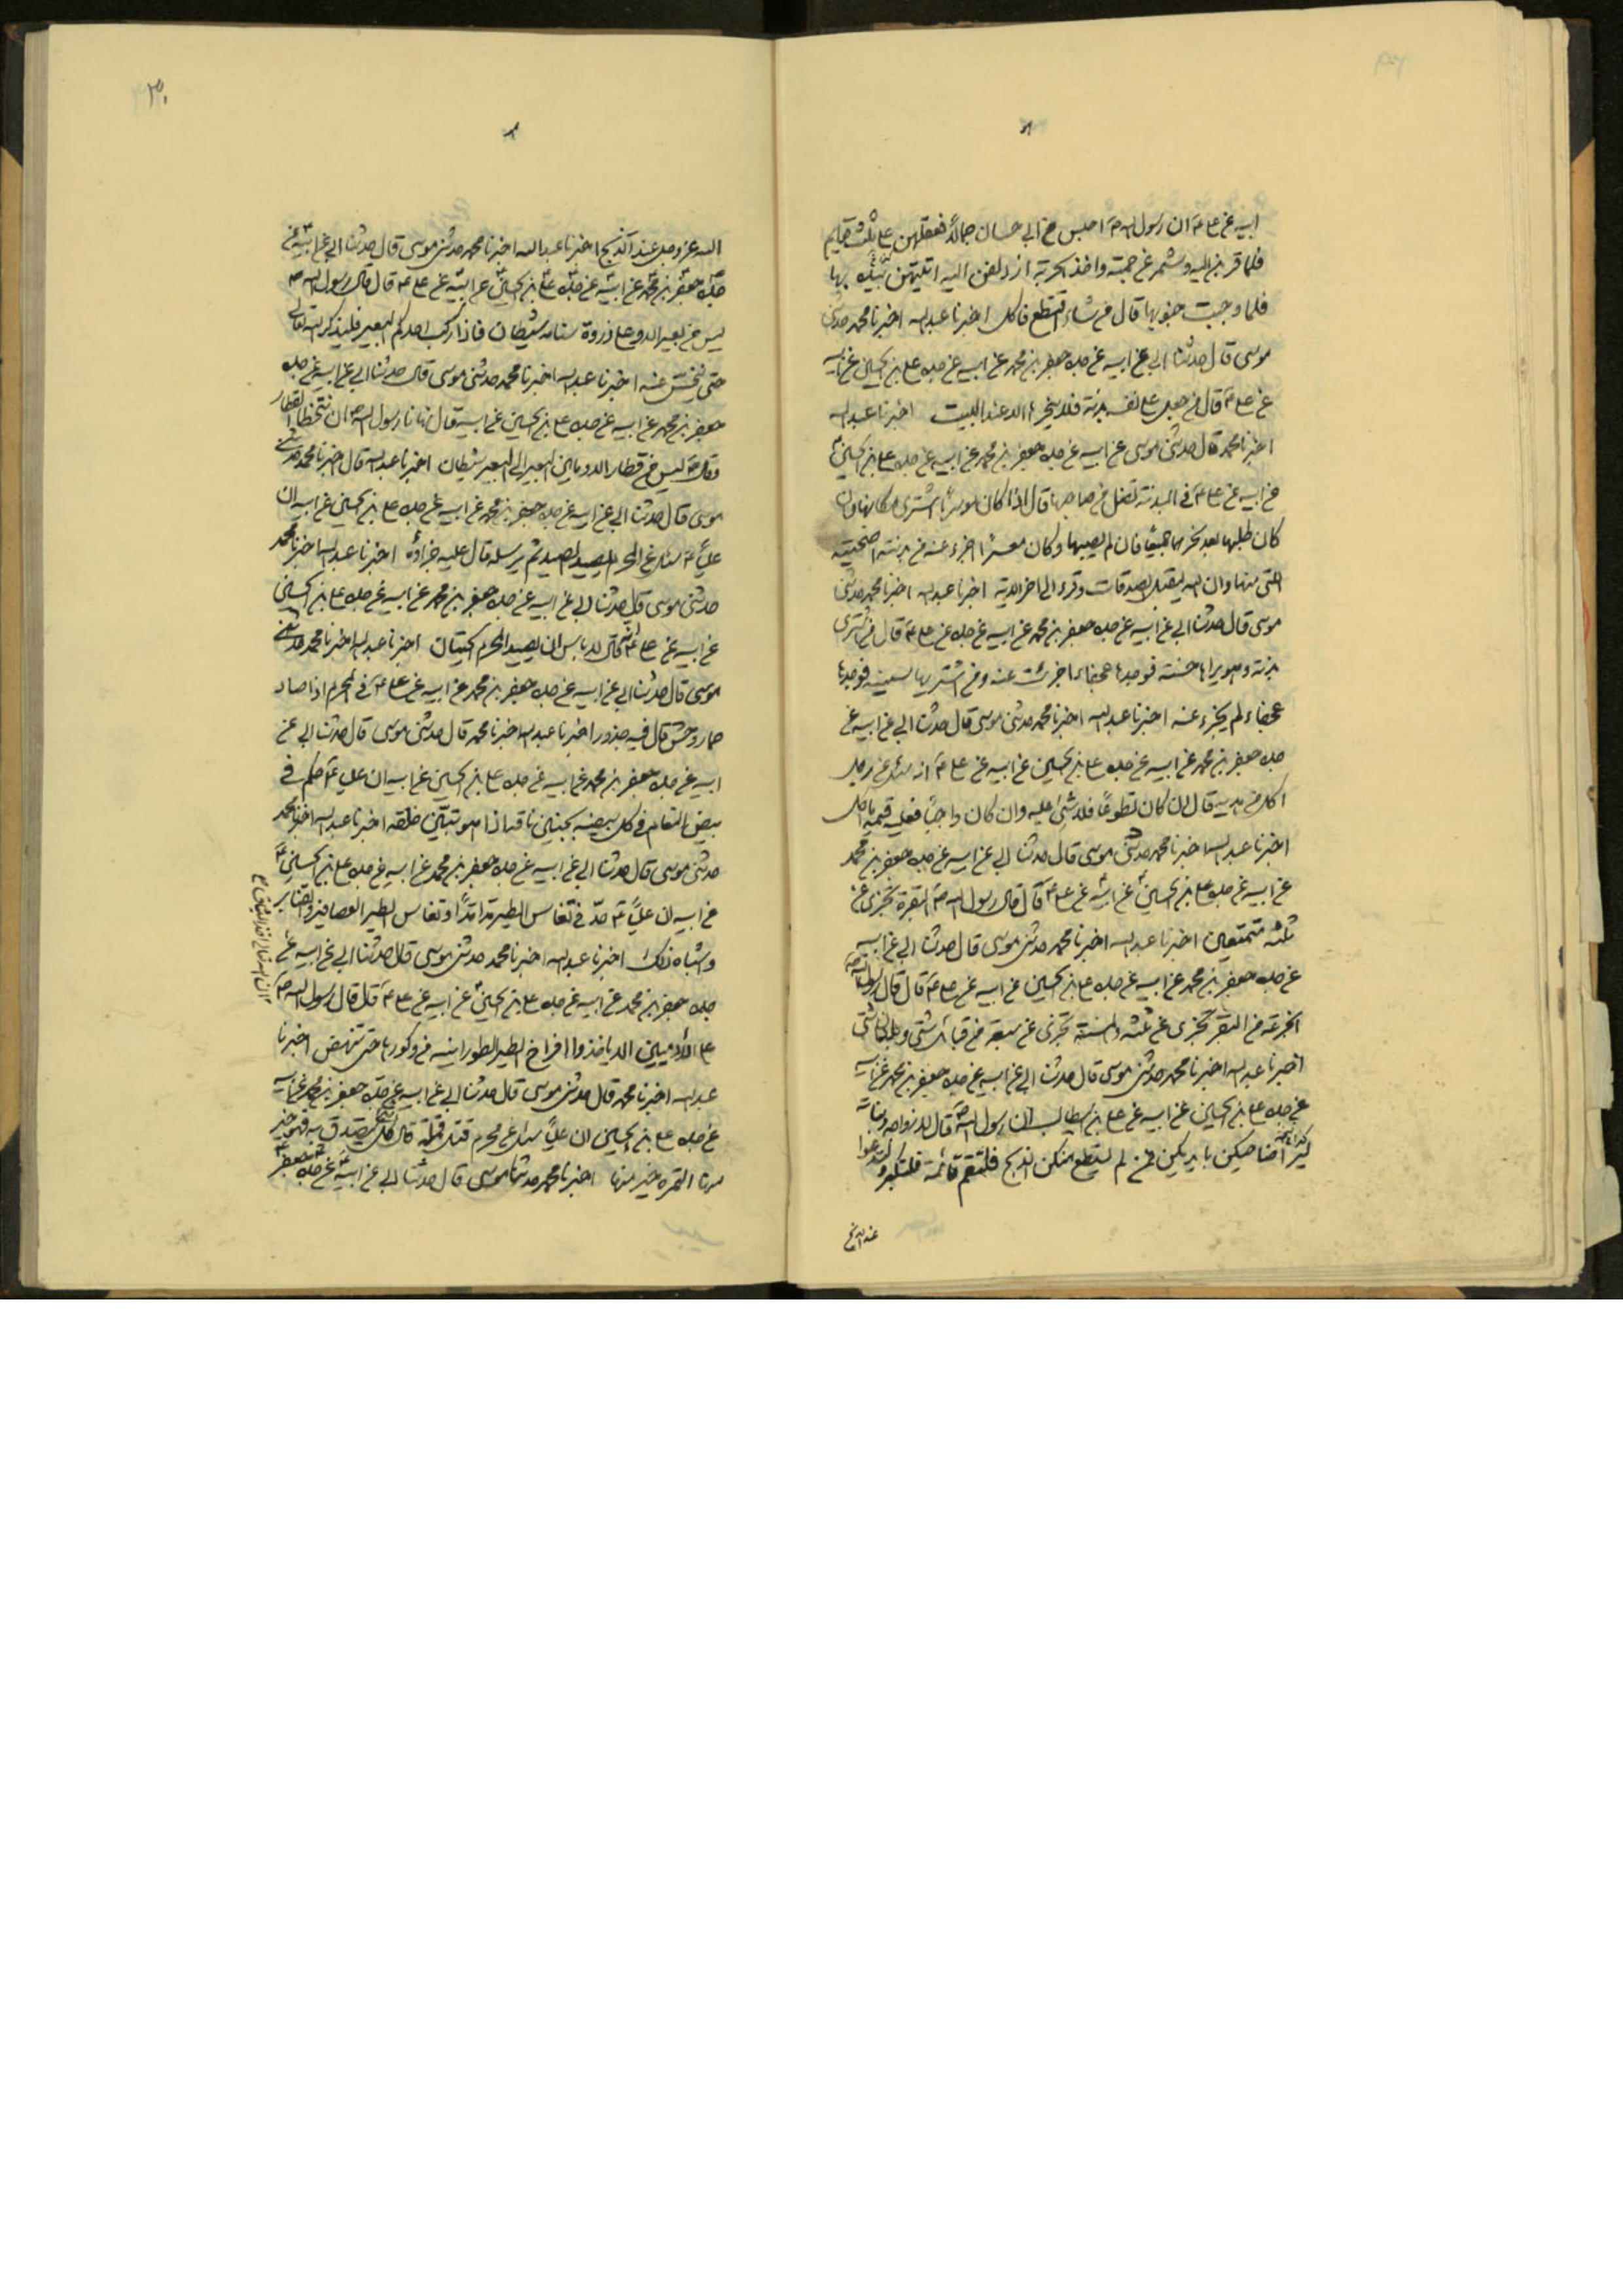 ابيه عن علي ع ان رسول الله ص احبس من ابي حسان جمالا فعقلهن على ثلث قوايم
فلما قربن اليه وشمر عن جبته واخذ الحربة ازدلفن اليه ايتهن بها
فلما وجبت جنوبها قال من شاء اقتطع فاكل اخبرنا عبد الله اخبرنا محمد حدثني
موسى قال حدثنا ابي عن ابيه عن جده جعفر بن محمد عن ابيه عن جده علي بن الحسين عن ابيه
عن علي ع قال من جعل على نفسه بدنة فلا ينحرها الا عند البيت اخبرنا عبد الله
اخبرنا محمد قال حدثني موسى عن ابيه عن جده جعفر بن محمد عن ابيه عن جده علي بن الحسين ع
عن ابيه عن علي ع في البدنة تضل من صاحبها قال اذا كان موسرا اشترى مكانها وان
كان طلبها بعد نحرها فان لم يصبها وكان معسرا اجزء عنه من بدنته اضحيته
التي منها وان الله يتقبل الصدقات وقرء الى اخر الاية اخبرنا عبد الله اخبرنا محمد حدثني
موسى قال حدثنا ابي عن ابيه عن جده جعفر بن محمد عن ابيه عن جده عن علي ع قال من اشترى
بدنة وهو يراها حسنة فوجدها عجفاء اجزئت عنه ومن اشتريها سمينة فوجدها
عجفاء لم يجزء عنه اخبرنا عبد الله اخبرنا محمد حدثني موسى قال حدثنا ابي عن ابيه عن
جده جعفر بن محمد عن ابيه عن جده علي بن الحسين عن ابيه عن علي ع انه سئل عن رجل
اكل من هديه قال ان كان تطوعا فلا شئ عليه وان كان واجبا فعليه قيمة ما اكل
اخبرنا عبد الله اخبرنا محمد حدثني موسى قال حدثنا ابي عن ابيه عن جده جعفر بن محمد
عن ابيه عن جده علي بن الحسين عن ابيه عن علي ع قال قال رسول الله ص البقرة تجزى عن
ثلثة متمتعين اخبرنا عبد الله اخبرنا محمد حدثني موسى قال حدثنا ابي عن ابيه
عن جده جعفر بن محمد عن ابيه عن جده علي بن الحسين عن ابيه عن علي ع قال قال رسول الله ص
الجزعة من البقر تجزى عن ثلثة والمسنة تجزى عن سبعة من قبائل شتى وبلدان شتى
اخبرنا عبد الله اخبرنا محمد حدثني موسى قال حدثنا ابي عن ابيه عن جده جعفر بن محمد عن ابيه
عن جده علي بن الحسين عن ابيه عن علي بن ابيطالب ان رسول الله ص قال لازواجه وبناته
اضاحيكن بايديكن فمن لم يستطع منكن الذبح فلتقم قائمة فلتكبر
عند الذبح
الله عز وجل عند الذبح اخبرنا عبد الله اخبرنا محمد حدثني موسى قال حدثنا ابي عن ابيه عن
جده جعفر بن محمد عن ابيه عن جده علي بن الحسين عن ابيه عن علي ع قال قال رسول الله ص
ليس من بعير الا وعلى ذروة سنامه شيطان فاذا ركب احدكم البعير فليذكر الله تعالى
حتى يخنس عنه اخبرنا عبد الله اخبرنا محمد حدثني موسى قال حدثنا ابي عن ابيه عن جده
جعفر بن محمد عن ابيه عن جده علي بن الحسين عن ابيه قال نهانا رسول الله ص ان نتخطا القطار
وقال ص ليس من قطار الا وما بين البعير الى البعير شيطان اخبرنا عبد الله قال اخبرنا محمد حدثني
موسى قال حدثنا ابي عن ابيه عن جده جعفر بن محمد عن ابيه عن جده علي بن الحسين عن ابيه ان
عليا ع سئل عن المحرم يصيد الصيد ثم يرسله قال عليه جزاؤه اخبرنا عبد الله اخبرنا محمد
حدثني موسى قال حدثنا ابي عن ابيه عن جده جعفر بن محمد عن ابيه عن جده علي بن الحسين
عن ابيه عن علي ع انه قال لا باس ان يصيد المحرم الحيتان اخبرنا عبد الله اخبرنا محمد حدثني
موسى قال حدثنا ابي عن ابيه عن جده جعفر بن محمد عن ابيه عن علي ع في المحرم اذا صاد
حمار وحش قال فيه جزور اخبرنا عبد الله اخبرنا محمد قال حدثني موسى قال حدثنا ابي عن
ابيه عن جده جعفر بن محمد عن ابيه عن جده علي بن الحسين عن ابيه ان عليا ع حكم في
بيض النعام في كل بيضة بجنين ناقة اذا خلقه اخبرنا عبد الله اخبرنا محمد
حدثني موسى قال حدثنا ابي عن ابيه عن جده جعفر بن محمد عن ابيه عن جده علي بن الحسين ع
عن ابيه ان عليا ع حد في الطير مدا مدا الطير العصافير والقنابر
واشباه ذلك اخبرنا عبد الله اخبرنا محمد حدثني موسى قال حدثنا ابي عن ابيه عن
جده جعفر بن محمد عن ابيه عن جده علي بن الحسين ع عن ابيه عن علي ع قال قال رسول الله ص
على الادميين الا ياخذوا افراخ الطير من وكورها حتى تنهض اخبرنا
عبد الله اخبرنا محمد قال حدثني موسى قال حدثنا ابي عن ابيه عن جده جعفر بن محمد عن ابيه
عن جده علي بن الحسين ان عليا سئل عن محرم قتل قملة قال كل شئ يتصدق به فهو خير
منها التمرة خير منها اخبرنا محمد حدثنا موسى قال حدثنا ابي عن ابيه عن جده جعفر